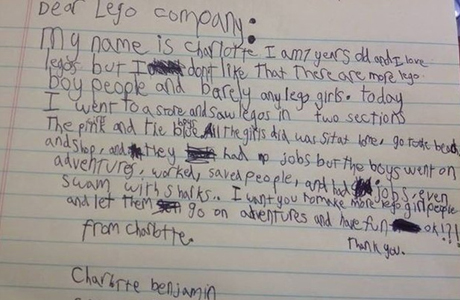 Dear Lego company:
My name is Charlotte. I am 7 years old and I love
legos but I don't like that there are more lego
boy people and barely any lego girls. today
I went to a store and saw legos in two sections
The pink and the blue. All the girls did was sit at home, go to the beach
and shop, and they had no jobs but the boys went on
adventures, worked, saved people, and had jobs, even
swam with sharks.. I want you to make more lego girl people
and let them go on adventures and have fun ok!?!
from Charlotte. Thank you.
Charlotte benjamin